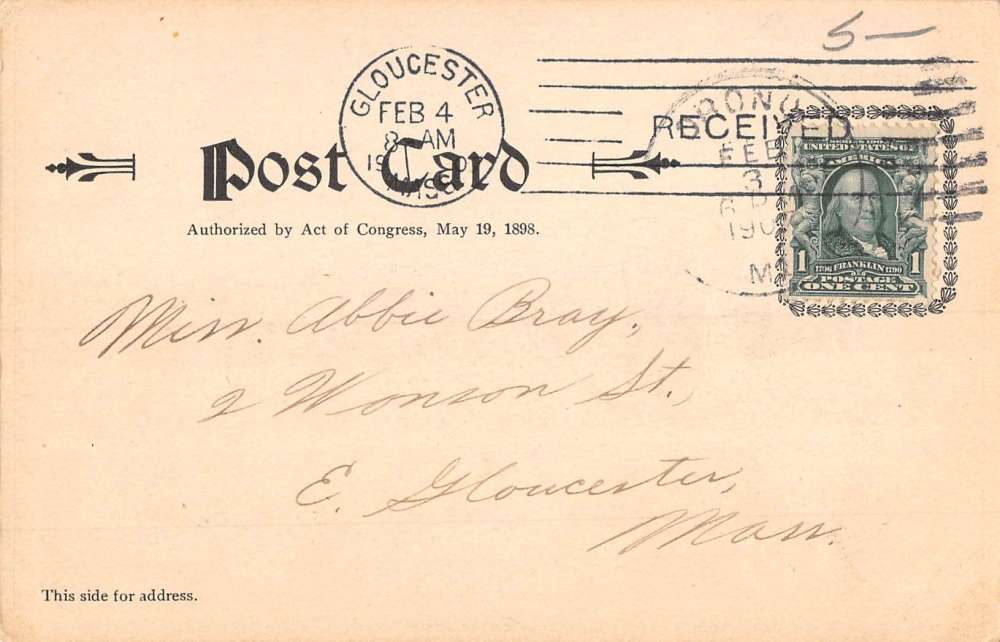 5—
GLOUCESTER
FEB 4
8 - AM
MASS
ORONO
RECEIVED
FEB
3
190
Post Card
Authorized by Act of Congress, May 19, 1898.
UNITED STATES OF
AMERICA
1 1706 FRANKLIN 1790 1
POSTAGE
ONE CENT
Miss. Abbie Bray,
2 Wonson St.,
E. Gloucester,
Mass.
This side for address.